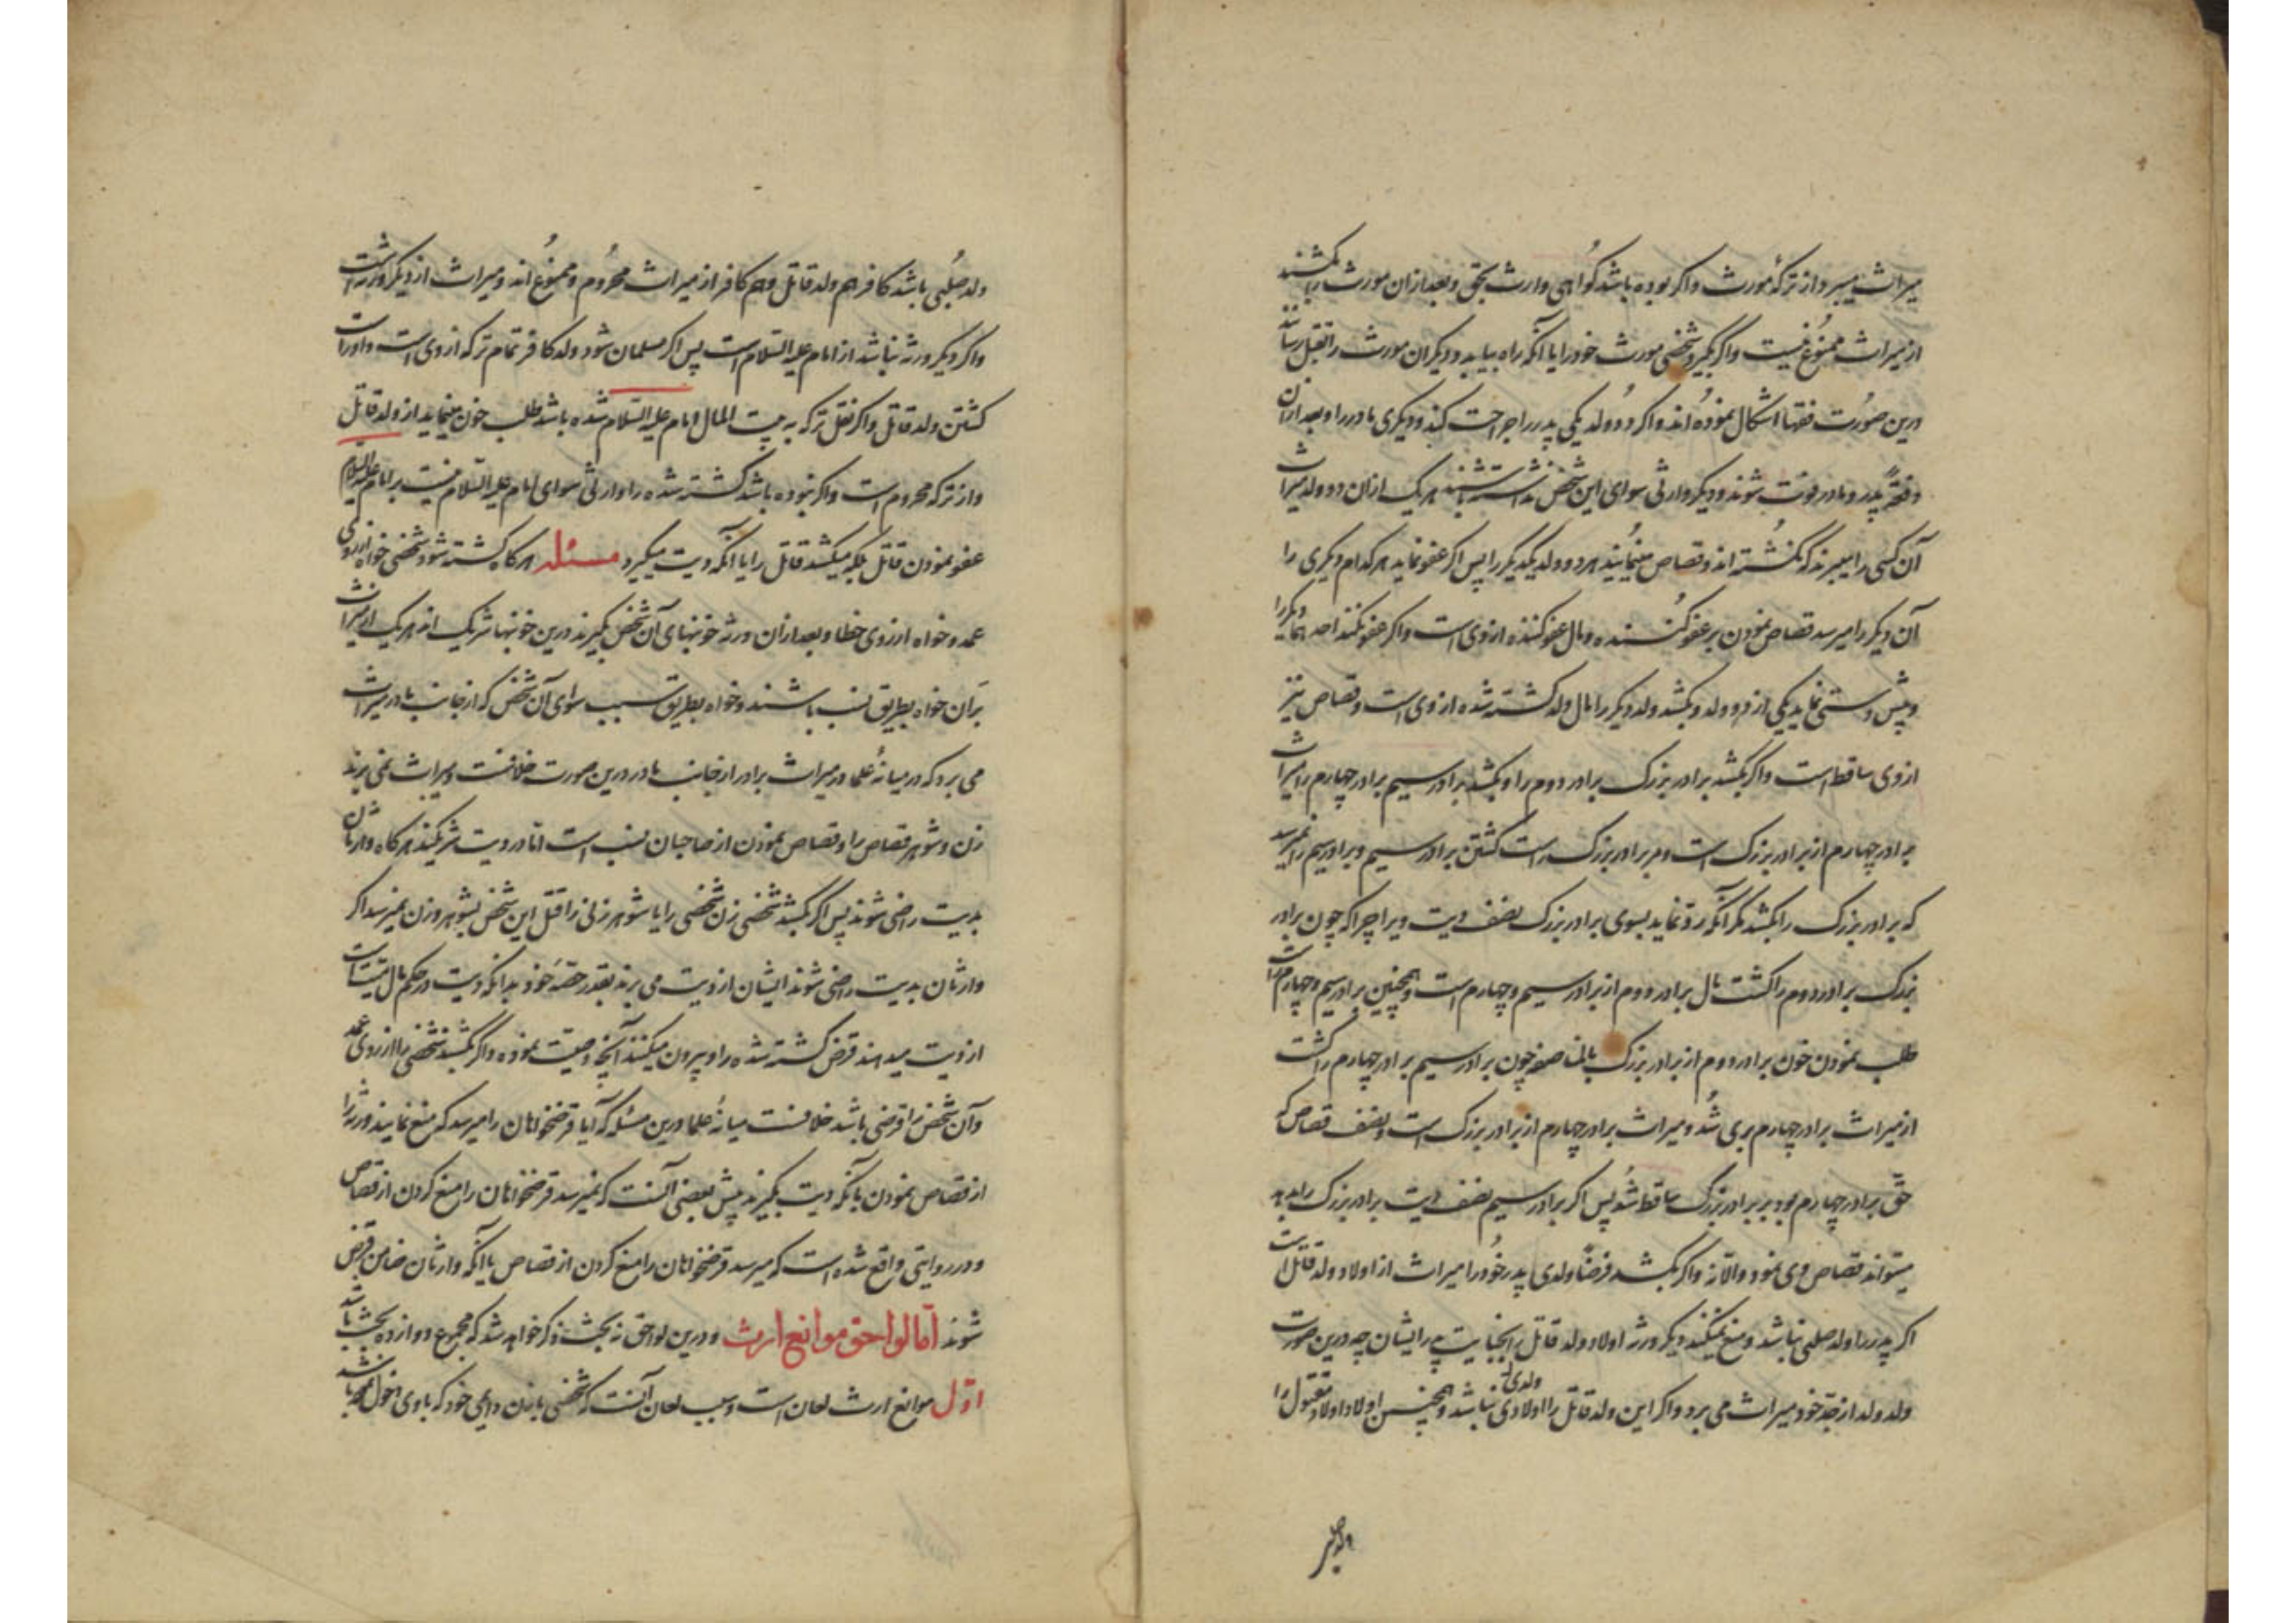 میراث میبرد از ترکهٔ مورث و اگر بوده باشد گواهی وارث بحق و بعد ازان مورث را بکشند
از میراث ممنوع نیست و اگر بگیرد شخصی مورث خود را یا آنکه راه بیابد و دیگران مورث را بقتل رسانند
درین صورت فقها اشکال نموده‌اند و اگر دو ولد یکی پدر را جراحت کند و دیگری مادر را و بعد ازان
دفعةً پدر و مادر فوت شوند و دیگر وارثی سوای این شخص نداشته باشند هر یک ازان دو ولد میراث
آن کسی را میبرند که نکشته‌اند و قصاص مینمایند هر دو ولد یکدیگر را پس اگر عفو نماید هر کدام دیگری را
آن دیگر را میرسد قصاص نمودن بر عفو کننده و مال عفو کننده از وی است و اگر عفو نکنند احدهما دیگر را
و پیش دستی نماید یکی از دو ولد و بکشد ولد دیگر را مال ولد کشته شده از وی است و قصاص نیز
از وی ساقط است و اگر بکشد برادر بزرک برادر دوم را و بکشد برادر سیم برادر چهارم را میراث
برادر چهارم از برادر بزرک است و بر برادر بزرک است کشتن برادر سیم و برادر سیم را نمیرسد
که برادر بزرک را بکشد مگر آنکه رد نماید بسوی برادر بزرک نصف دیت ویرا چرا که چون برادر
بزرک برادر دوم را کشت مال برادر دوم از برادر سیم و چهارم است و همچنین برادر سیم و چهارم راست
طلب نمودن خون برادر دوم از برادر بزرک بالمناصفه چون برادر سیم برادر چهارم را کشت
از میراث برادر چهارم بری شد و میراث برادر چهارم از برادر بزرک است و نصف قصاص که
حق برادر چهارم بود بر برادر بزرک ساقط شد پس اگر برادر سیم نصف دیت برادر بزرک را بدهد
میتواند قصاص وی نمود و الا نه و اگر بکشد فرضاً ولدی پدر خود را میراث از اولاد ولد قاتل است
اگر پدر را ولد صلبی نباشد و منع نمیکنند دیگر ورثه اولاد ولد قاتل را بجنایت پدر ایشان چه درین صورت
ولد ولد از جد خود میراث می برد و اگر این ولد قاتل را اولادی ولدی نباشد و همچنین اولاد اولاد مقتول را
ولد صلبی
ولد صلبی باشد کافر هم ولد قاتل و هم کافر از میراث محروم و ممنوع اند و میراث از دیگر ورثه است
و اگر دیگر ورثه نباشد از امام علیه السلام است پس اگر مسلمان شود ولد کافر تمام ترکه از وی است و اوراست
کشتن ولد قاتل و اگر نقل ترکه به بیت المال امام علیه السلام شده باشد طلب خون مینماید از ولد قاتل
و از ترکه محروم است و اگر نبوده باشد کشته شده را وارثی سوای امام علیه السلام نیست بر امام علیه السلام
عفو نمودن قاتل بلکه میکشد قاتل را یا آنکه دیت میگیرد مسئله هرگاه کشته شود شخصی خواه از روی
عمد و خواه از روی خطا و بعد ازان ورثه خونبهای آن شخص بگیرند درین خونبها شریک اند هر یک از میراث
بران خواه بطریق نسب باشند و خواه بطریق سبب سوای آن شخص که از جانب مادر میراث
می برد که در میانهٔ علما در میراث برادر از جانب مادر درین صورت خلافست و میراث نمی برند
زن و شوهر قصاص را و قصاص نمودن از صاحبان نسب است اما در دیت شریکند هرگاه وارثان
بدیت راضی شوند پس اگر بکشد شخصی زن شخصی را یا شوهر زنی را قتل این شخص بشوهر و زن نمیرسد اگر
وارثان بدیت راضی شوند ایشان از دیت می برند بقدر حصهٔ خود بدانکه دیت در حکم مال میت است
از دیت میدهند قرض کشته شده را و بیرون میکنند آنچه وصیت نموده و اگر بکشد شخصی را از روی عمد
و آن شخص را قرضی باشد خلافست میانهٔ علما درین مسئله که آیا قرضخواهان را میرسد که منع نمایند ورثه را
از قصاص نمودن یا آنکه دیت بگیرند پیش بعضی آنست که نمیرسد قرضخواهان را منع کردن از قصاص
و در روایتی واقع شده است که میرسد قرضخواهان را منع کردن از قصاص یا آنکه وارثان ضامن قرض
شوند اما لواحق موانع ارث و درین لواحق نه بحث ذکر خواهد شد که مجموع دوازده بحث باشد
اول موانع ارث لعان است و سبب لعان آنست که شخصی با زن دایمی خود که با وی دخول کرده باشد